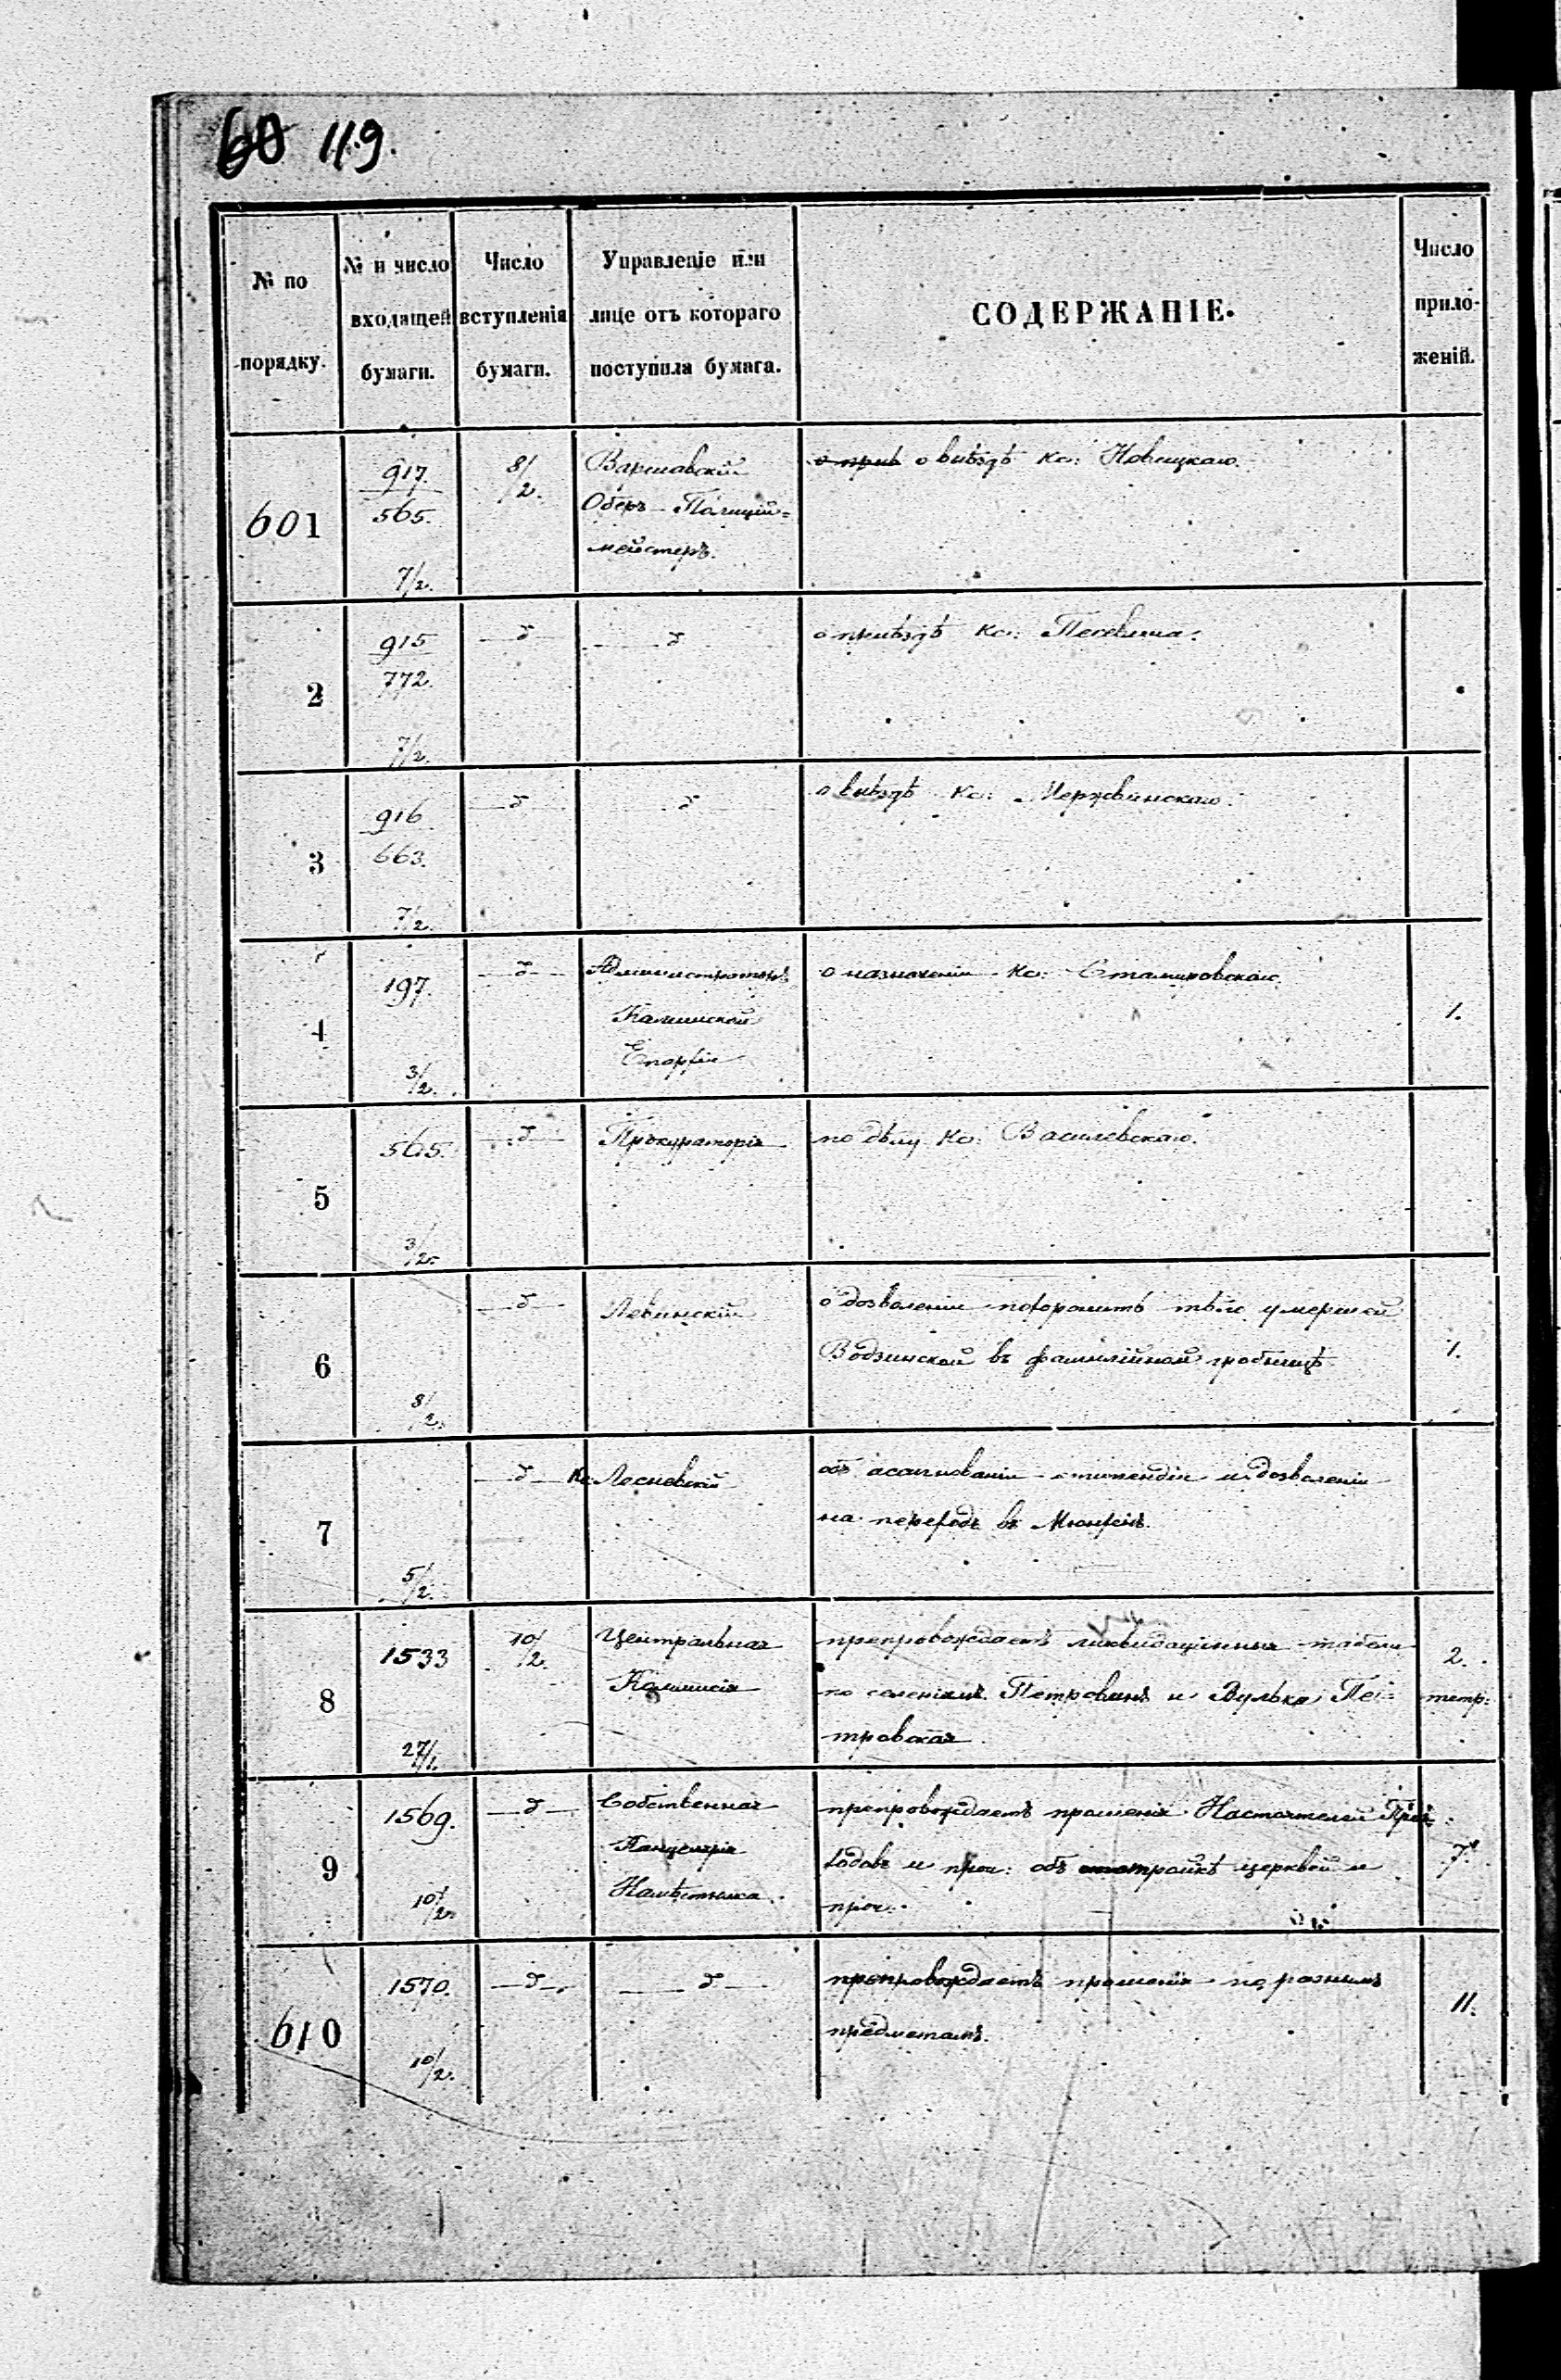 60 119.
№ по порядку.
№ и число входящей бумаги.
Число вступленія бумаги.
Управленіе или лице отъ котораго поступила бумага.
СОДЕРЖАНІЕ.
Число приложеній.
601
917.
565.
7/2.
8/2.
Варшавскій
Оберъ-Полицій=
мейстеръ.
о выѣздѣ Кс: Новицкаго.
2
915
772.
7/2.
—д—
—д—
о пріѣздѣ Кс:
3
916
663.
7/2.
—д—
—д—
о выѣздѣ Кс:
4
197.
3/2.
—д—
Администраторъ
Епархіи
о назначеніи Кс:
1.
5
565.
3/2.
—д—
Прокураторія
по дѣлу Кс: Василевскаго.
3/2.
6
8/2.
—д—
Левинскій
о дозволеніи похоронить тѣло умершей
Водзинской въ фамилійной гробницѣ
1.
7
5/2.
—д—
Кс: Лосневскій
объ асигнованіи стипендіи и дозволеніи
на переходъ въ Мюнхенъ.
8
1533
27/1.
10/2.
Центральная
Коммисія
препровождаетъ ликвидаціонныя табели
по селеніямъ Петровинъ и Вулька Пе=
тровская.
2.
тетр:
9
1569.
10/2.
—д—
Собственная
Канцелярія
Намѣстника.
препровождаетъ прошенія Настоятелей При
ходовъ и проч: объ церквей и
проч:
7.
610
1570.
10/2.
—д—
—д—
препровождаетъ прошенія по разнымъ
предметамъ.
11.